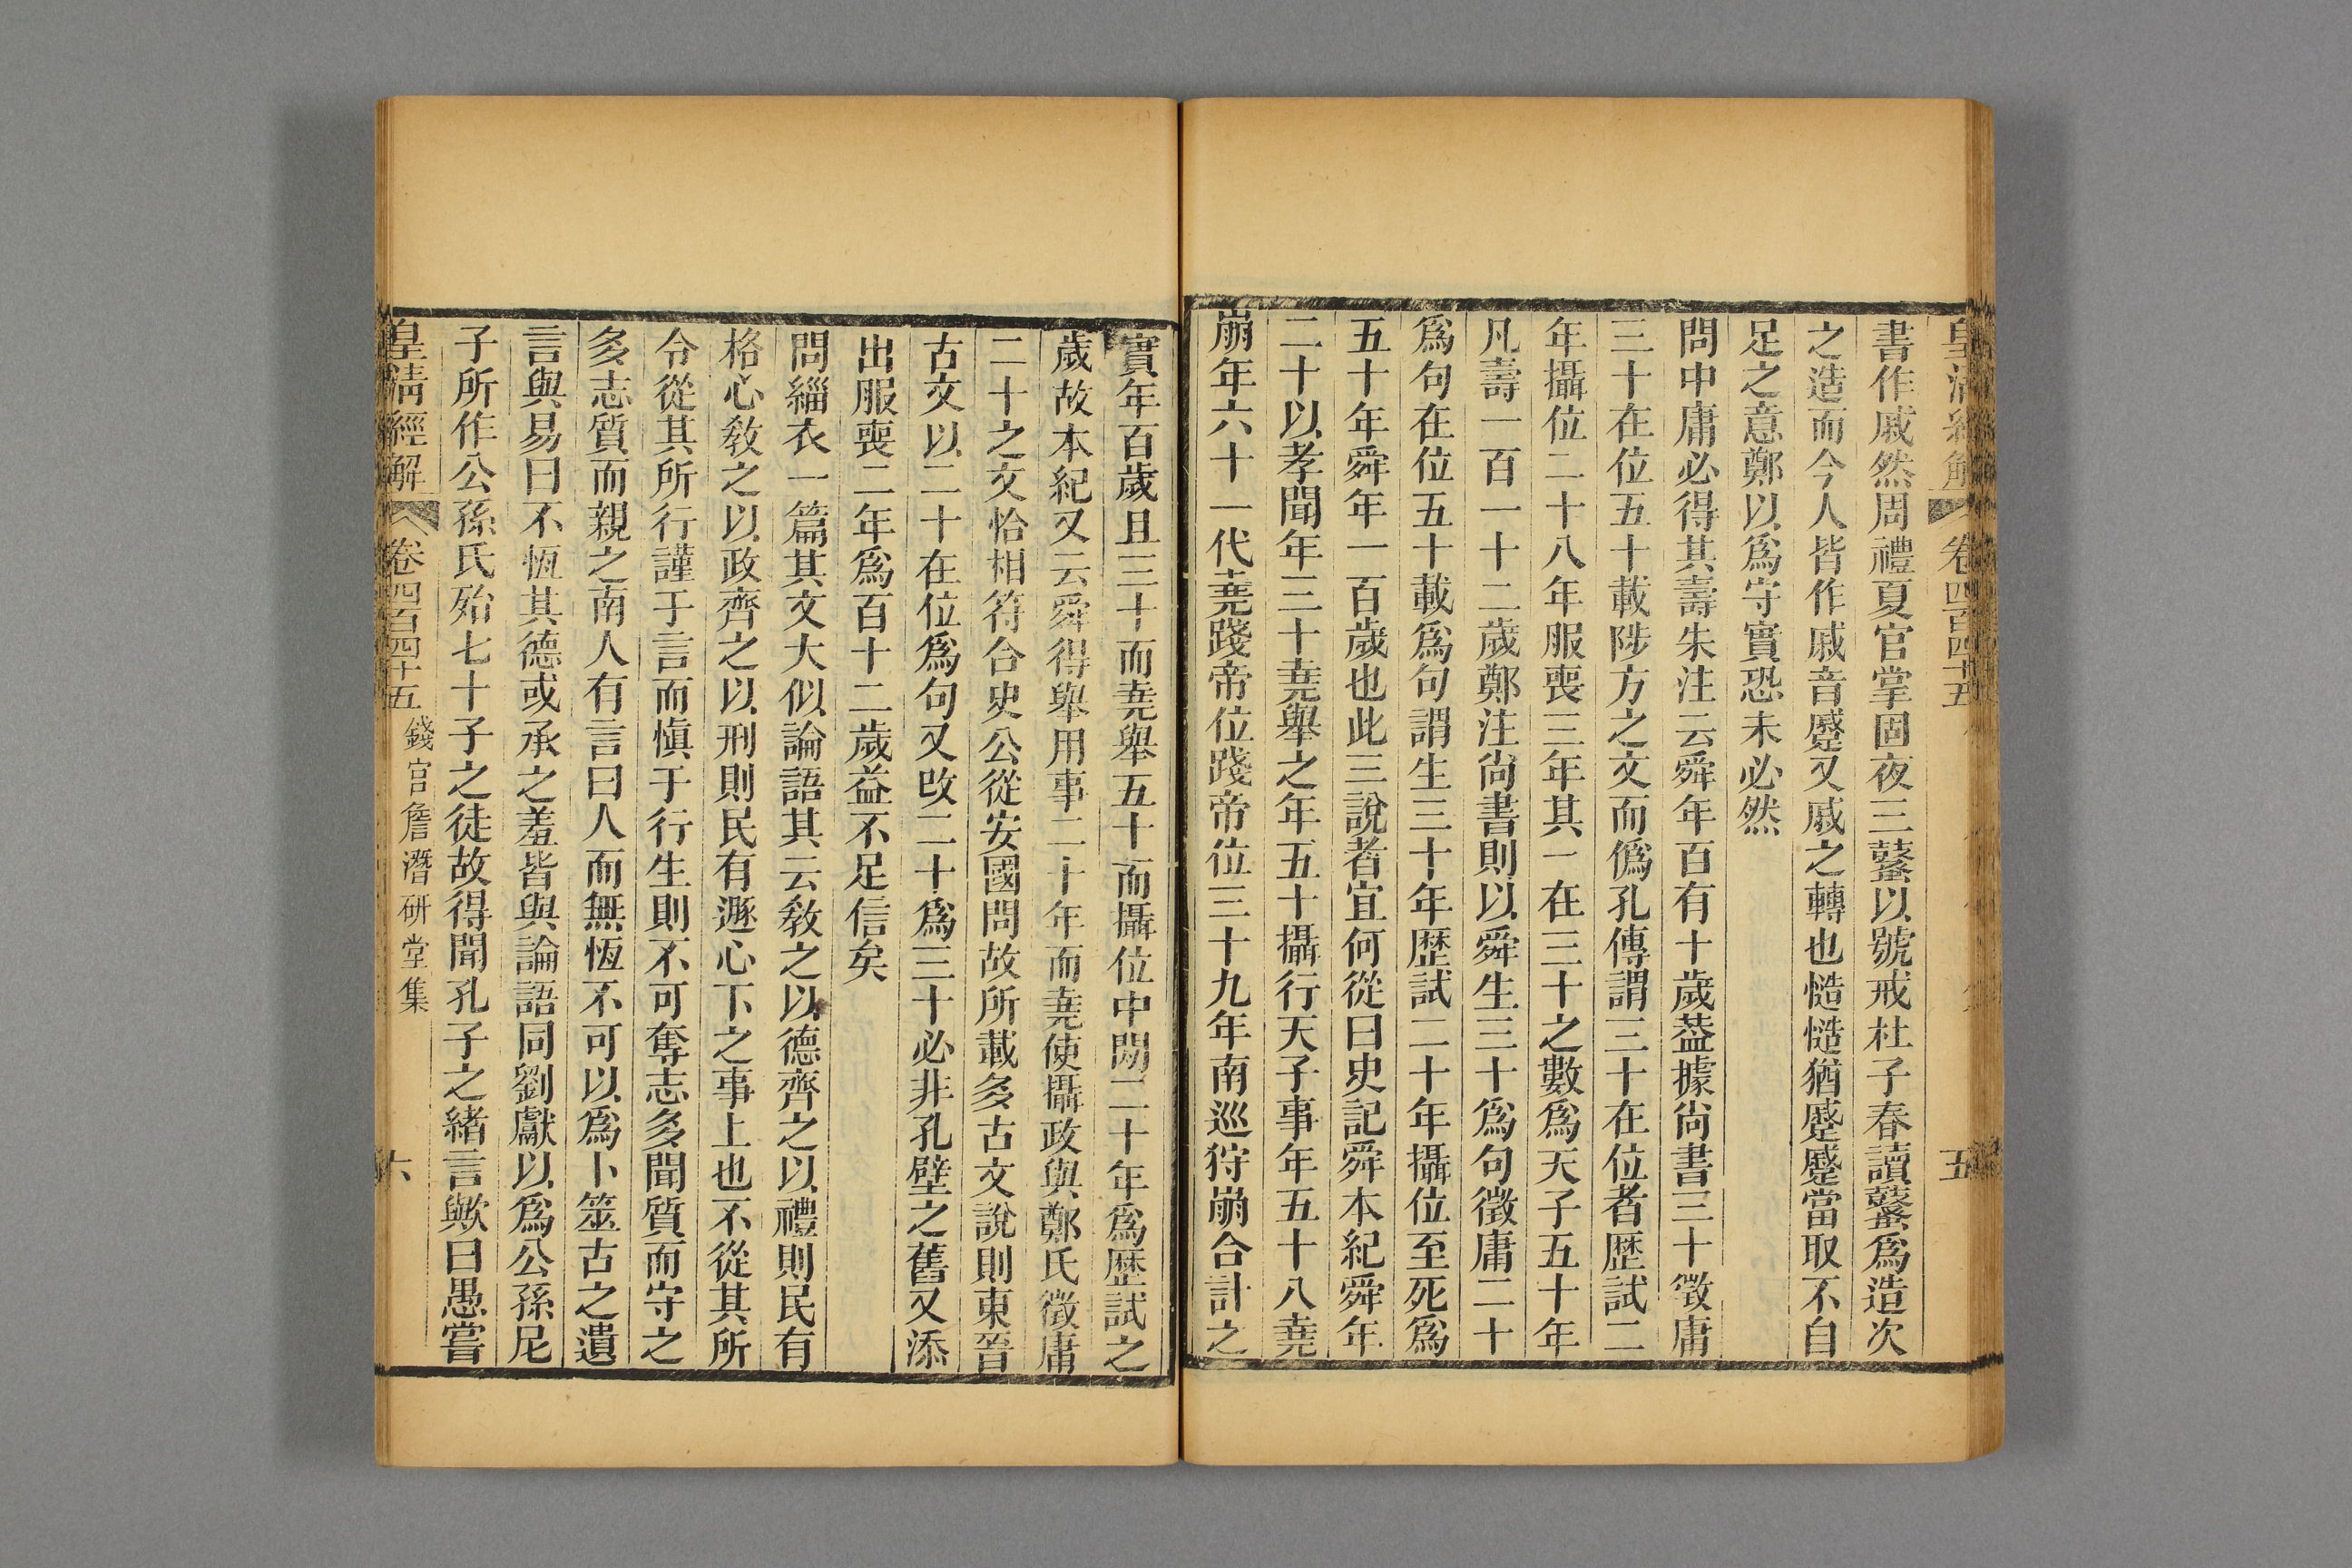 皇清經解 卷四百四十五 五
書作戚然周禮夏官掌固夜三鼜以號戒杜子春讀鼜爲造次
之造而今人皆作戚音蹙又戚之轉也慥慥猶蹙蹙當取不自
足之意鄭以爲守實恐未必然
問中庸必得其壽朱注云舜年百有十歲葢據尙書三十徵庸
三十在位五十載陟方之文而僞孔傳謂三十在位者歷試二
年攝位二十八年服喪三年其一在三十之數爲天子五十年
凡壽一百一十二歲鄭注尙書則以舜生三十爲句徵庸二十
爲句在位五十載爲句謂生三十年歷試二十年攝位至死爲
五十年舜年一百歲也此三說者宜何從曰史記舜本紀舜年
二十以孝聞年三十堯舉之年五十攝行天子事年五十八堯
崩年六十一代堯踐帝位踐帝位三十九年南巡狩崩合計之
實年百歲且三十而堯舉五十而攝位中閒二十年爲歷試之
歲故本紀又云舜得舉用事二十年而堯使攝政與鄭氏徵庸
二十之文恰相符合史公從安國問故所載多古文說則東晉
古文以二十在位爲句又改二十爲三十必非孔壁之舊又添
出服喪二年爲百十二歲益不足信矣
問緇衣一篇其文大似論語其云敎之以德齊之以禮則民有
格心敎之以政齊之以刑則民有遯心下之事上也不從其所
令從其所行謹于言而愼于行生則不可奪志多聞質而守之
多志質而親之南人有言曰人而無恆不可以爲卜筮古之遺
言與易曰不恆其德或承之羞皆與論語同劉獻以爲公孫尼
子所作公孫氏殆七十子之徒故得聞孔子之緒言歟曰愚嘗
皇淸經解 卷四百四十五 錢官詹潛研堂集 六